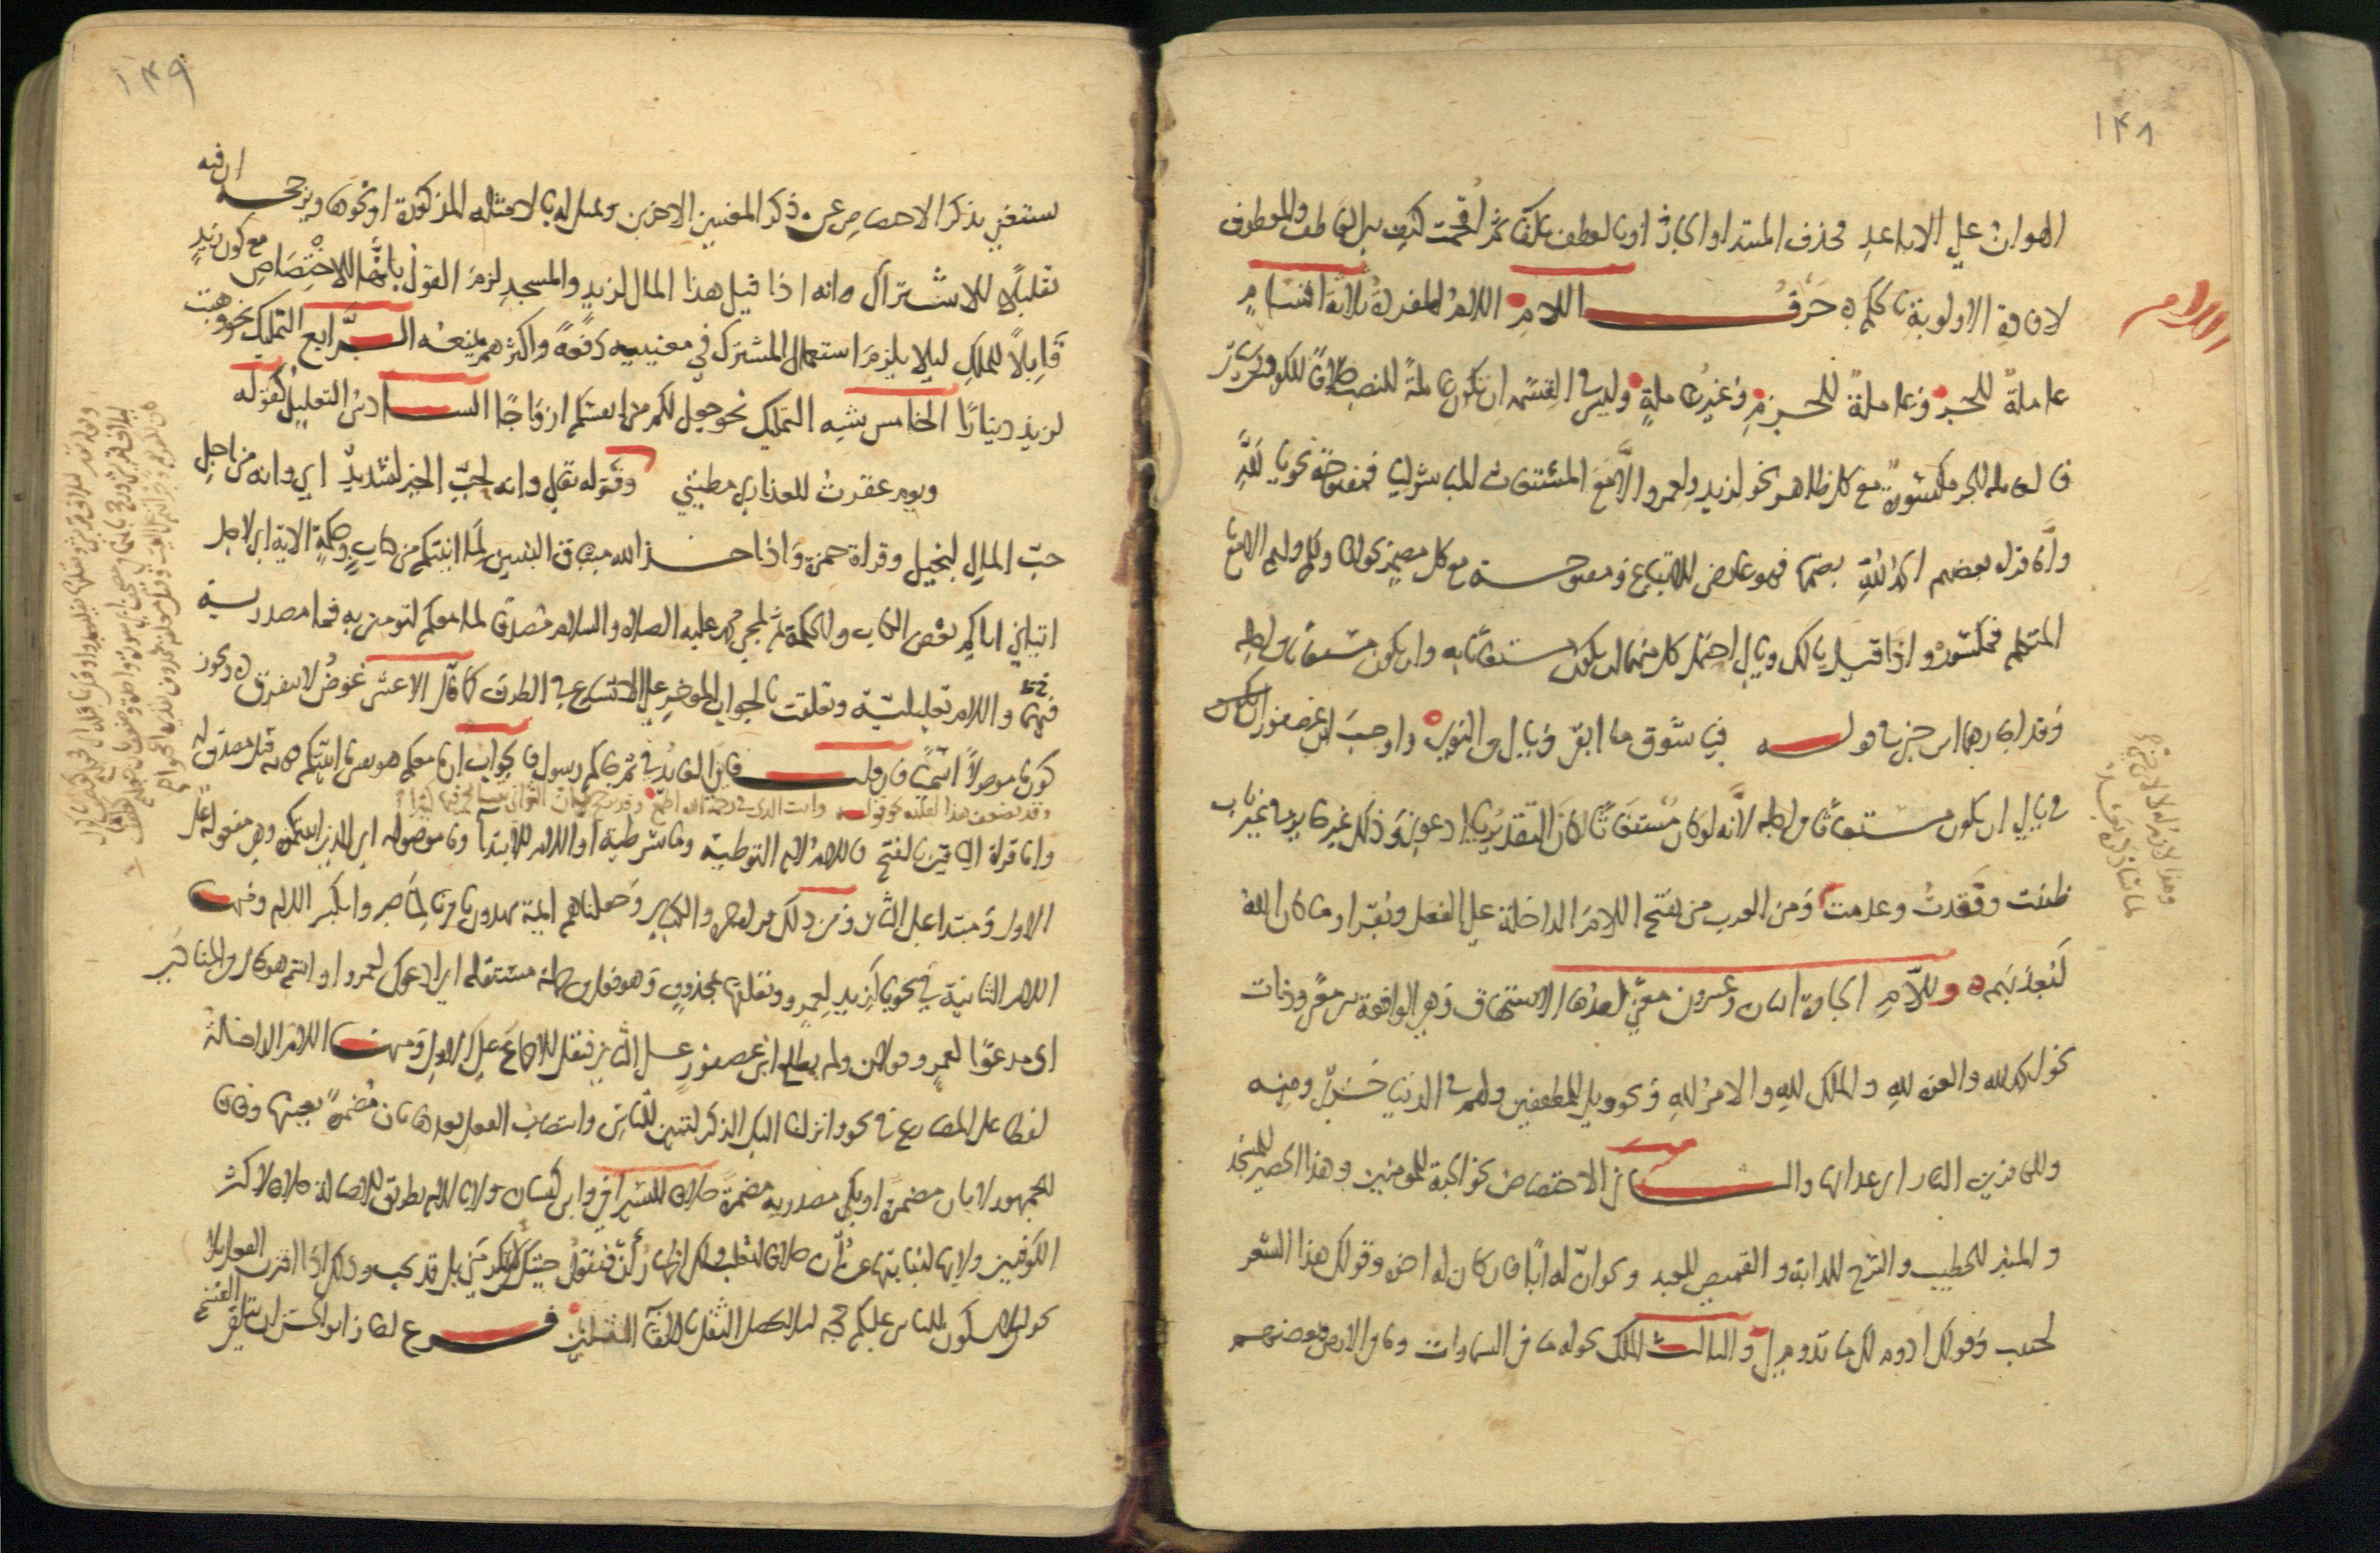 ١٤٨
الهوان على الاباعد فحذف المبتدا والجار او بالعطف بالفا ثم اقحمت كيف بين العاطف والمعطوف
لافادة الاولوية بالحكم ه حرف اللام اللام المفردة ثلاثة اقسام
اللام
عاملة للجر وعاملة للجزم وغير عاملة وليس في القسمة ان تكون عاملة للنصب خلافا للكوفيين
فالعاملة للجر مكسورة مع كل ظاهر نحو لزيد ولعمرو الا مع المستغاث المباشر ليا فمفتوحة نحو يا لله
واما قراة بعضهم الحمد لله بضمها فهو عارض للاتباع ومفتوحة مع كل مضمر نحو لنا ولكم ولهم الا مع يا
المتكلم فمكسورة واذا قيل يا لك ويا لي احتمل كل منهما ان يكون مستغاثا به وان يكون مستغاثا من اجله
وقد اجازهما ابن جني في قوله فيا شوق ما ابقى ويا لي من النوى واوجب ابن عصفور
في يا لي ان يكون مستغاثا من اجله لانه لو كان مستغاثا به لكان التقدير يا ادعو لي وذلك غير جايز في غير باب
ظننت وفقدت وعدمت ومن العرب من يفتح اللام الداخلة على الفعل ويقرا وما كان الله
ليعذبهم ه وللام الجارة اثنان وعشرون معنى احدها الاستحقاق وهي الواقعة بين معنى وذات
نحو الحمد لله والعزة لله والملك لله والامر لله ونحو ويل للمطففين ولهم في الدنيا خزي ومنه
وللكافرين النار اي عذابها والثاني الاختصاص نحو الجنة للمومنين وهذا الحصير للمسجد
والمنبر للخطيب والسرج للدابة والقميص للعبد ونحو ان له ابا فان كان له اخوة وقولك هذا الشعر
لحبيب وقولك ادوم لك ما تدوم لي والثالث الملك نحو له ما في السماوات وما في الارض وبعضهم
١٤٩
يستغني بذكر الاختصاص عن ذكر المعنيين الاخرين ويمثل له بالامثلة المذكورة او نحوها ويرجحه ان فيه
تقليلا للاشتراك وانه اذا قيل هذا المال لزيد والمسجد لزم القول بانها للاختصاص مع كون زيد
قابلا للملك ليلا يلزم استعمال المشترك في معنييه دفعة واكثرهم يمنعه الرابع التمليك نحو وهبت
لزيد دينارا الخامس شبه التمليك نحو جعل لكم من انفسكم ازواجا السادس التعليل كقوله
ويوم عقرت للعذارى مطيتي وقوله تعالى وانه لحب الخير لشديد اي وانه من اجل
حب المال لبخيل وقراة حمزة واذ اخذ الله ميثاق النبيين لما اتيتكم من كتاب وحكمة الاية اي لاجل
ايتاي اياكم بعض الكتاب والحكمة ثم لمجي محمد عليه الصلاة والسلام مصدقا لما معكم لتومنن به فما مصدرية
فيهما واللام تعليلية وتعلقت بالجواب الموخر على الاتساع في الظرف كما قال الاعشى عوض لا نتفرق ه ويجوز
كون ما موصولا اسميا فان قلت فاين العايد في ثم جاكم رسول قلت ان ما معكم هو نفس ما اتيتكم
وقد يضعف هذا لقلته نحو قوله وانت الذي في رحمة الله اطمع
واما قراة الباقين بالفتح فاللام لام التوطية وما شرطية او اللام للابتدا وما موصولة اي الذي اتيتكموه وهي مفعولة على
الاول ومبتدا على الثاني ومن ذلك قراة حمزة والكسائي وجعلناهم ايمة يهدون بامرنا لما صبروا بكسر اللام ومنها
اللام الثانية في نحو يا لزيد لعمرو وتعلقها بمحذوف وهو فعل من جملة مستقلة اي ادعوك لعمرو او اسم هو حال من المنادى
اي مدعوا لعمرو قولان ولم يطلع ابن عصفور على الثاني فنقل الاجماع على الاول ومنها اللام الداخلة
لفظا على المضارع في نحو وانزلنا اليك الذكر لتبين للناس وانتصاب الفعل بعدها بان مضمرة بعينها وفاقا
للجمهور لا بان مضمرة او بكي مصدرية مضمرة خلافا للسيرافي وابن كيسان ولا باللام بطريق الاصالة خلافا لاكثر
الكوفيين ولا بها لنيابتها عن ان خلافا لثعلب ولك اظهار ان فتقول جيتك لان تكرمني بل قد يجب وذلك اذا اقترن الفعل بلا
نحو ليلا يكون للناس عليكم حجة ليلا يحصل الثقل بالتقا المثلين فرع اجاز ابو الحسن ان يتلقى القسم